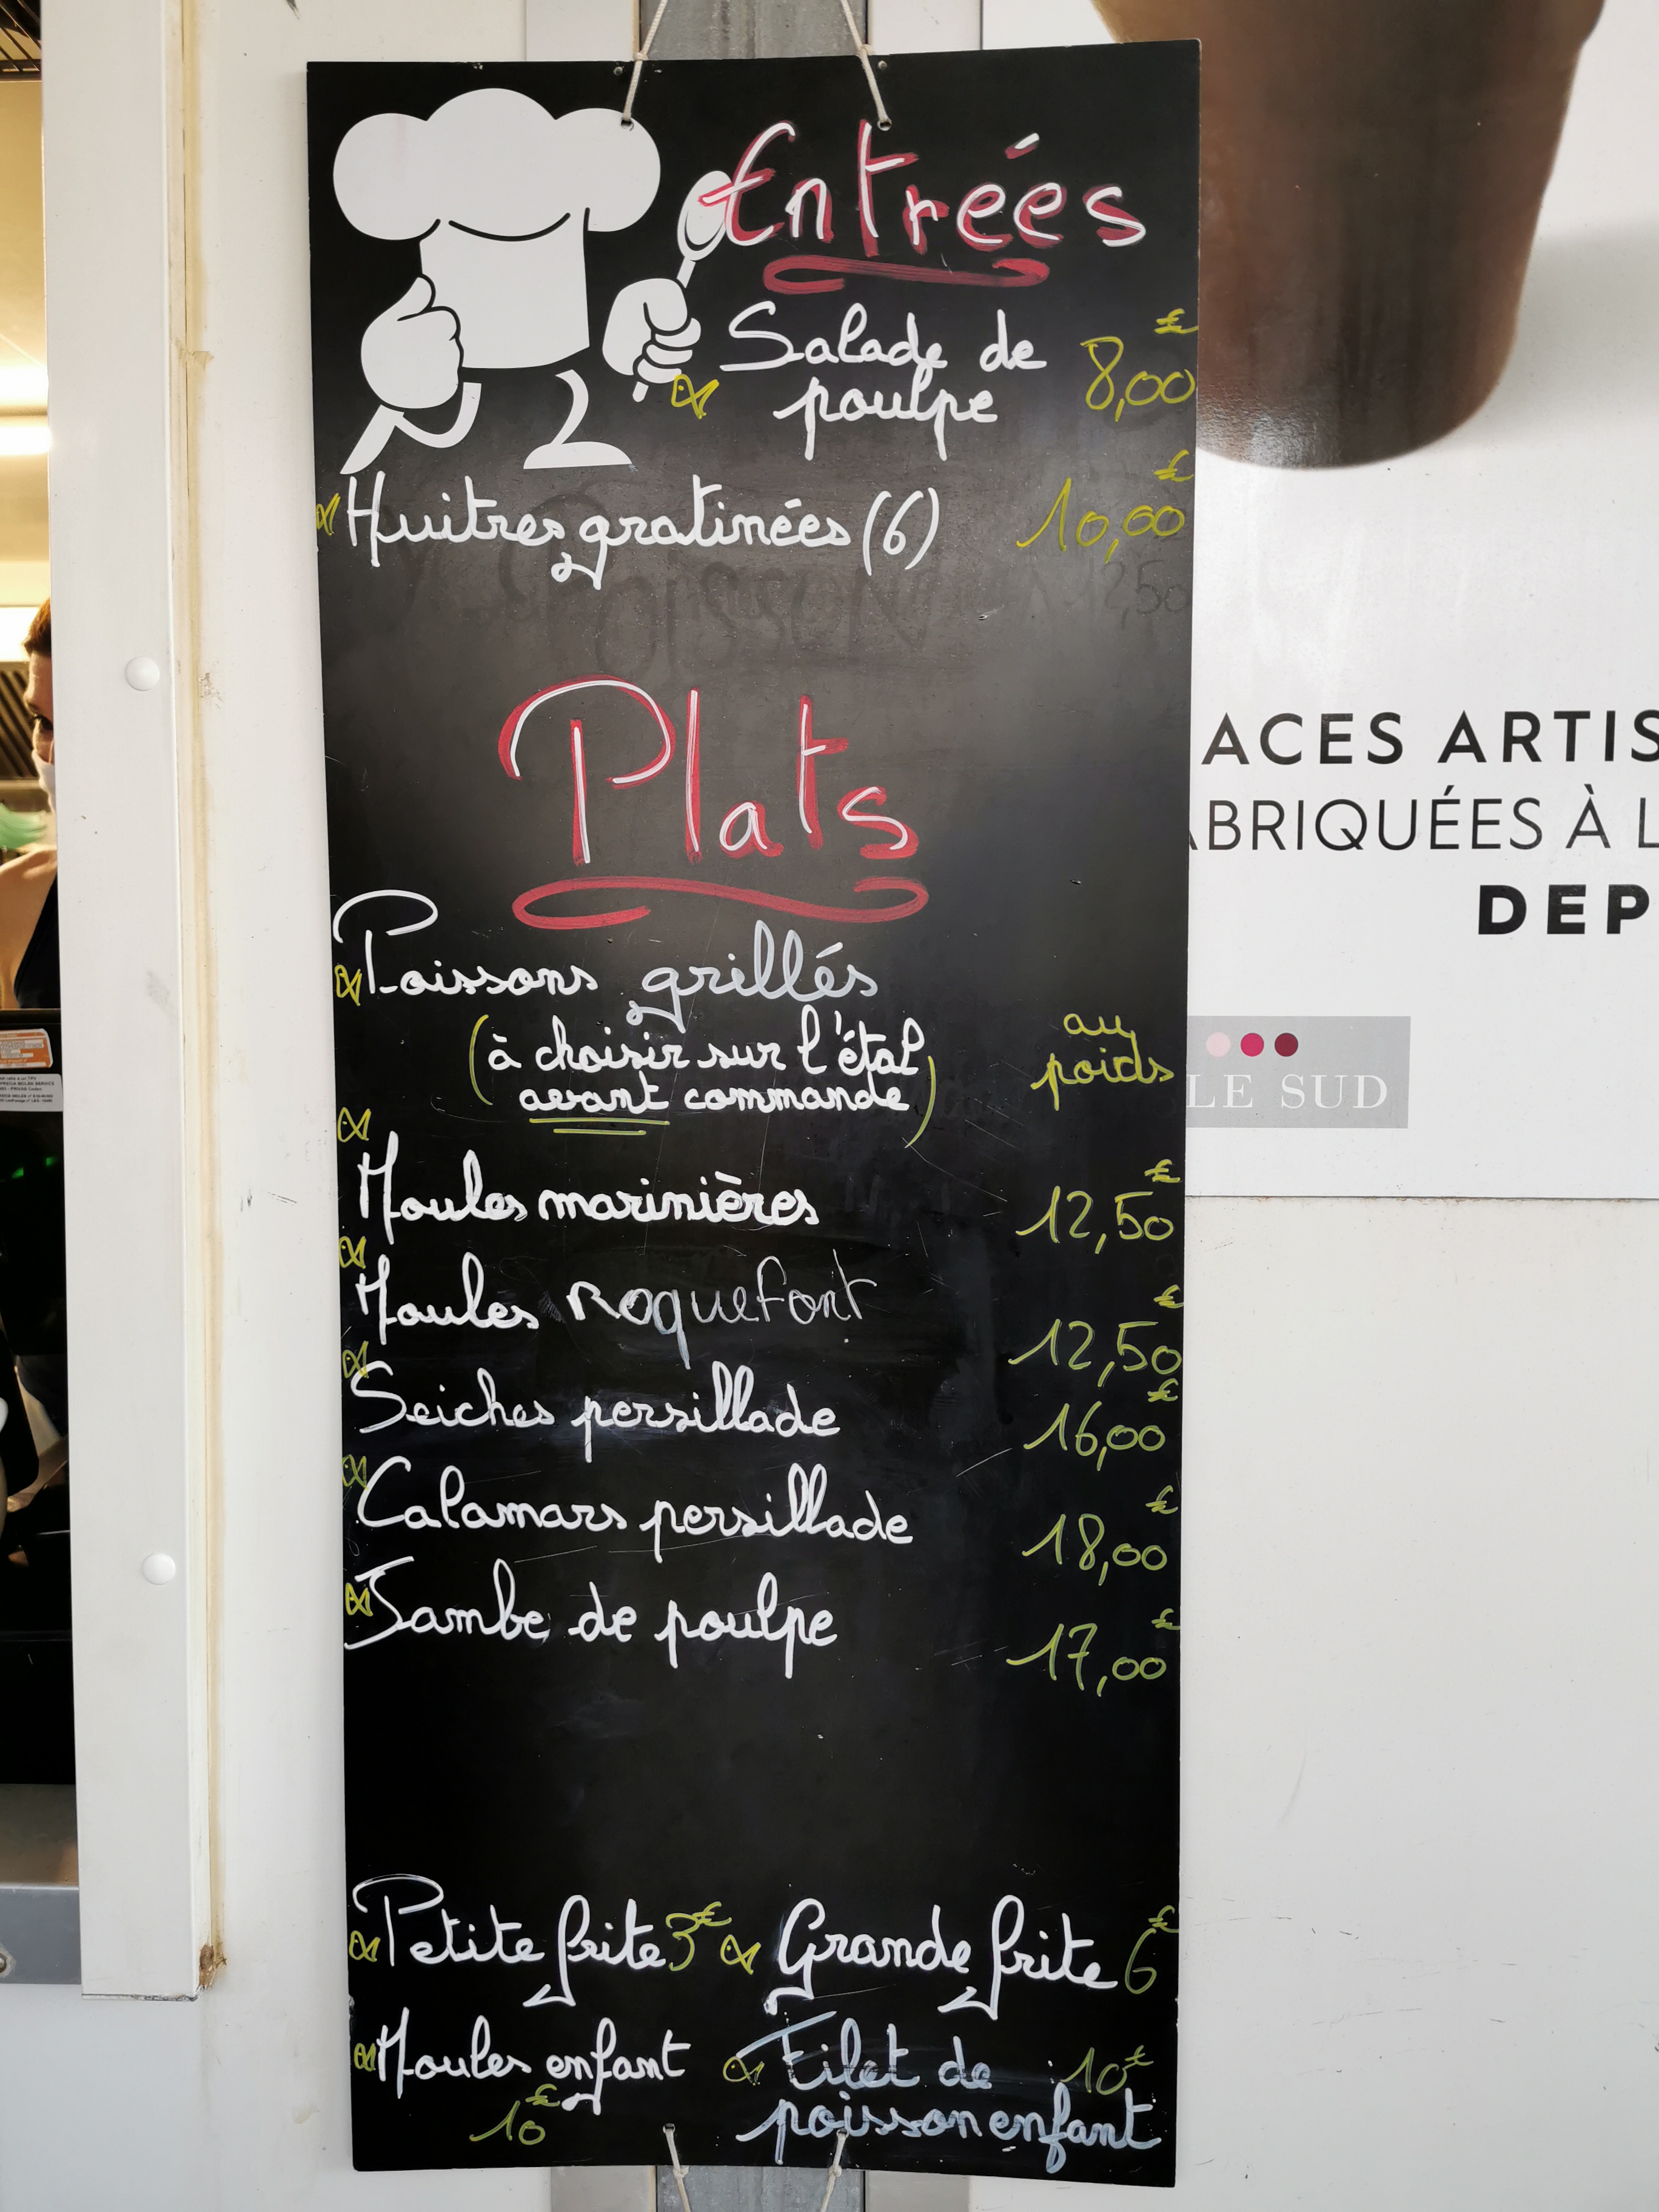 Entrées
Salade de 8,00€
poulpe
Huitres gratinées (6) 10,00€
Poisson 12,50
Plats
Poissons grillés
(à choisir sur l'étal au
avant commande) poids
Moules marinières 12,50€
Moules Roquefort 12,50€
Seiches persillade 16,00€
Calamars persillade 18,00€
Jambe de poulpe 17,00€
Petite frite 3€ Grande frite 6€
Moules enfant Filet de 10€
10€ poisson enfant
ACES ARTIS
ABRIQUÉES À L
DEP
LE SUD